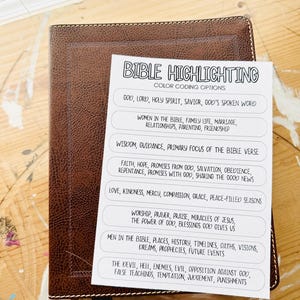 BIBLE HIGHLIGHTING
COLOR CODING OPTIONS
GOD, LORD, HOLY SPIRIT, SAVIOR, GOD'S SPOKEN WORD
WOMEN IN THE BIBLE, FAMILY LIFE, MARRIAGE,
RELATIONSHIPS, PARENTING, FRIENDSHIP
WISDOM, GUIDANCE, PRIMARY FOCUS OF THE BIBLE VERSE
FAITH, HOPE, PROMISES FROM GOD, SALVATION, OBEDIENCE,
REPENTANCE, PROMISES WITH GOD, SHARING THE GOOD NEWS
LOVE, KINDNESS, MERCY, COMPASSION, GRACE, PEACE-FILLED SEASONS
WORSHIP, PRAYER, PRAISE, MIRACLES OF JESUS,
THE POWER OF GOD, BLESSINGS GOD GIVES US
MEN IN THE BIBLE, PLACES, HISTORY, TIMELINES, OATHS, VISIONS,
DREAMS, PROPHECIES, FUTURE EVENTS
THE DEVIL, HELL, ENEMIES, EVIL, OPPOSITION AGAINST GOD,
FALSE TEACHINGS, TEMPTATION, JUDGEMENT, PUNISHMENTS